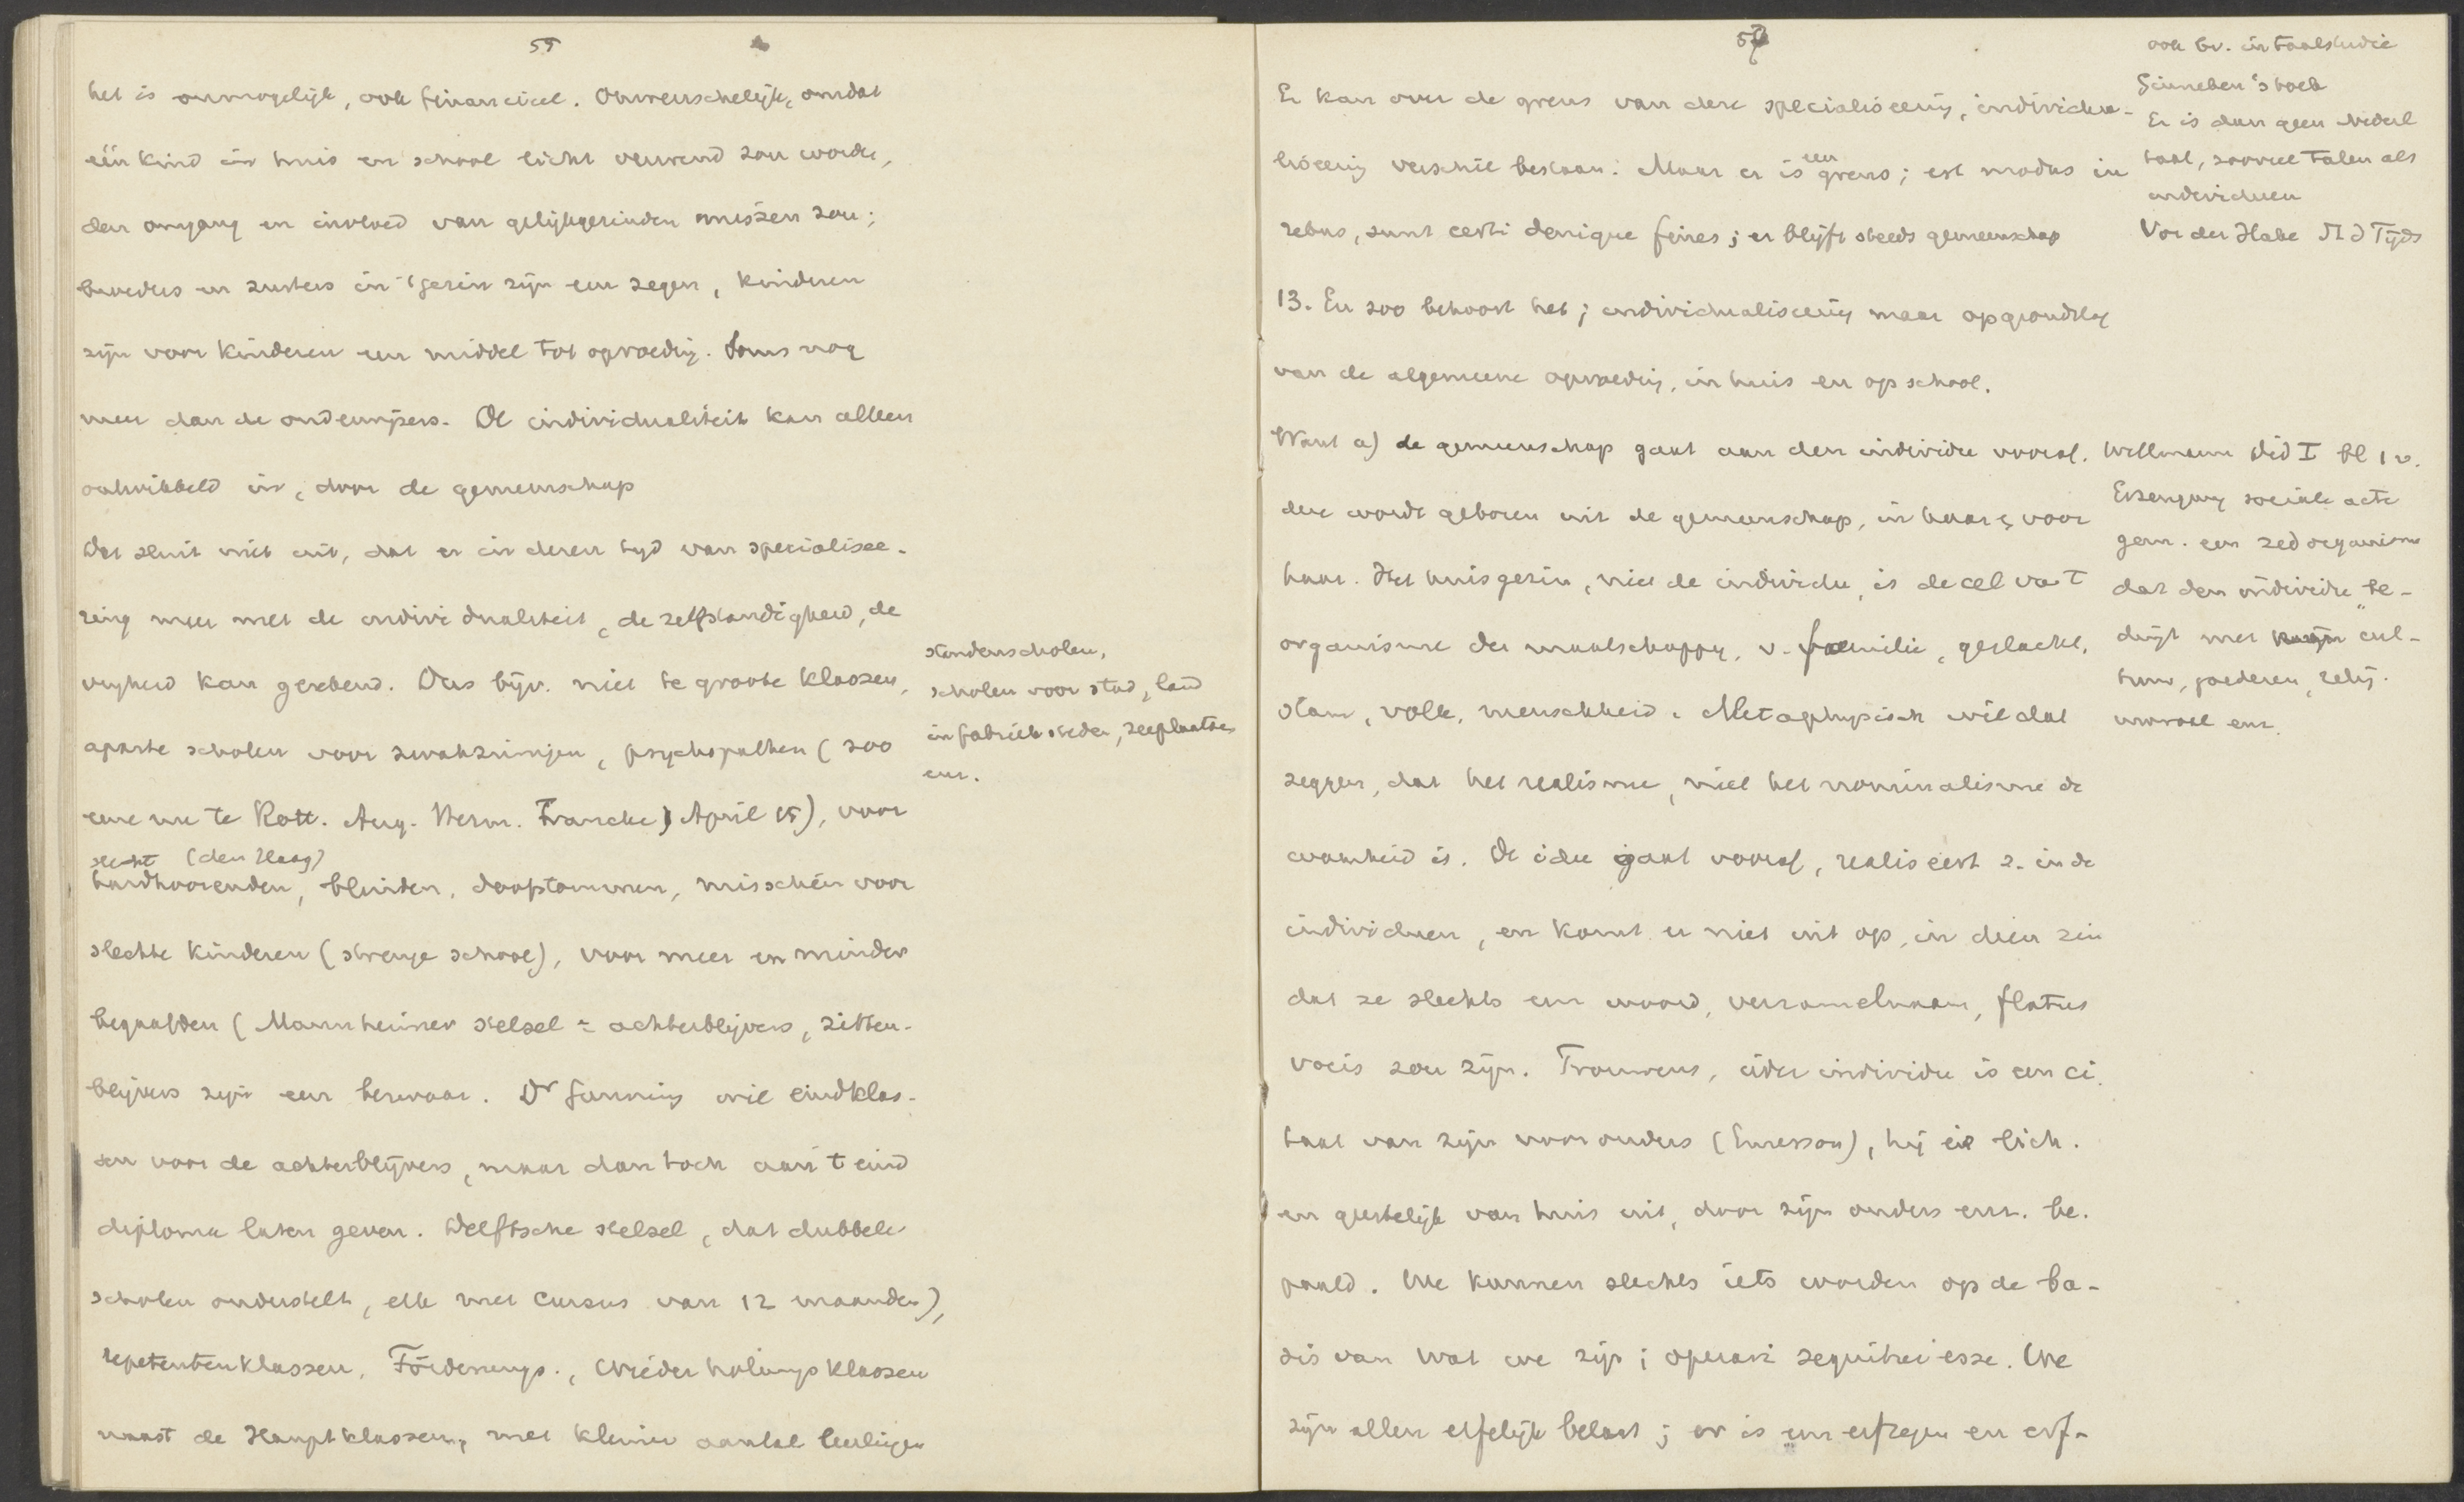 55
het is onmogelijk, ook financieel. Onwenschelijk, omdat
één kind in huis en school licht verwend zou worden,
den omgang en invloed van gelijkgezinden missen zou;
broeders en zusters in 't gezin zijn een zegen, kinderen
zijn voor kinderen een middel tot opvoeding. Soms nog
meer dan de onderwijzers. De individualiteit kan alleen
ontwikkeld in, door de gemeenschap
Dat sluit niet uit, dat er in dezen tijd van specialisee-
ring meer met de individualiteit, de zelfstandigheid, de
vrijheid kan gerekend. Dus bijv. niet te groote klassen,
aparte scholen voor zwakzinnigen, psychopathen (zoo
eene nu te Rott. Aug. Herm. Francke, April 15), voor
slecht (den Haag)
hardhoorenden, blinden, doofstommen, misschien voor
slechte kinderen (strenge school), voor meer en minder
begaafden (Mannheimer stelsel = achterblijvers, zitten-
blijvers zijn een bezwaar. Dr Gunning wil eindklas-
sen voor de achterblijvers, maar dan toch aan 't eind
diploma laten geven. Delftsche stelsel, dat dubbele
scholen onderstelt, elk met cursus van 12 maanden),
repetentenklassen, Förderungs-, Wiederholungsklassen
naast de Hauptklassen, met kleiner aantal leerlingen
standenscholen,
scholen voor stad, land
in fabrieksteden, zeeplaatsen
enz.
57
Er kan over de grens van deze specialiseering, individua-
liseering verschil bestaan. Maar er is een grens; est modus in
rebus, sunt certi denique fines; er blijft steeds gemeenschap
13. En zoo behoort het; individualiseering maar op grondslag
van de algemeene opvoeding, in huis en op school.
Want a) de gemeenschap gaat aan den individu vooraf.
deze wordt geboren uit de gemeenschap, in haar, voor
haar. Het huisgezin, niet de individu, is de cel van 't
organisme der maatschappij, v. familie, geslacht,
stam, volk, menschheid. Metaphysisch wil dat
zeggen, dat het realisme, niet het nominalisme de
waarheid is. De idee gaat vooraf, realiseert z. in de
individuen, en komt er niet uit op, in dien zin
dat ze slechts een woord, verzamelnaam, flatus
vocis zou zijn. Trouwens, ieder individu is een ci-
taat van zijn voorouders (Emerson), hij is lich.
en geestelijk van huis uit, door zijn ouders enz. be-
paald. We kunnen slechts iets worden op de ba-
sis van wat we zijn; operari sequitur esse. We
zijn allen erfelijk belast; er is een erfzegen en erf-
ook bv. in taalstudie
Ginneken's boek
Er is dan geen Nederl
taal, zooveel talen als
individuen
Vor der Hake N T Tijds
Willmann Did I bl 1 v.
Erzeugung sociale acte
gem. een zed organisme
dat den individu be-
 met zijn cul-
tuur, goederen, relig.
moraal enz.